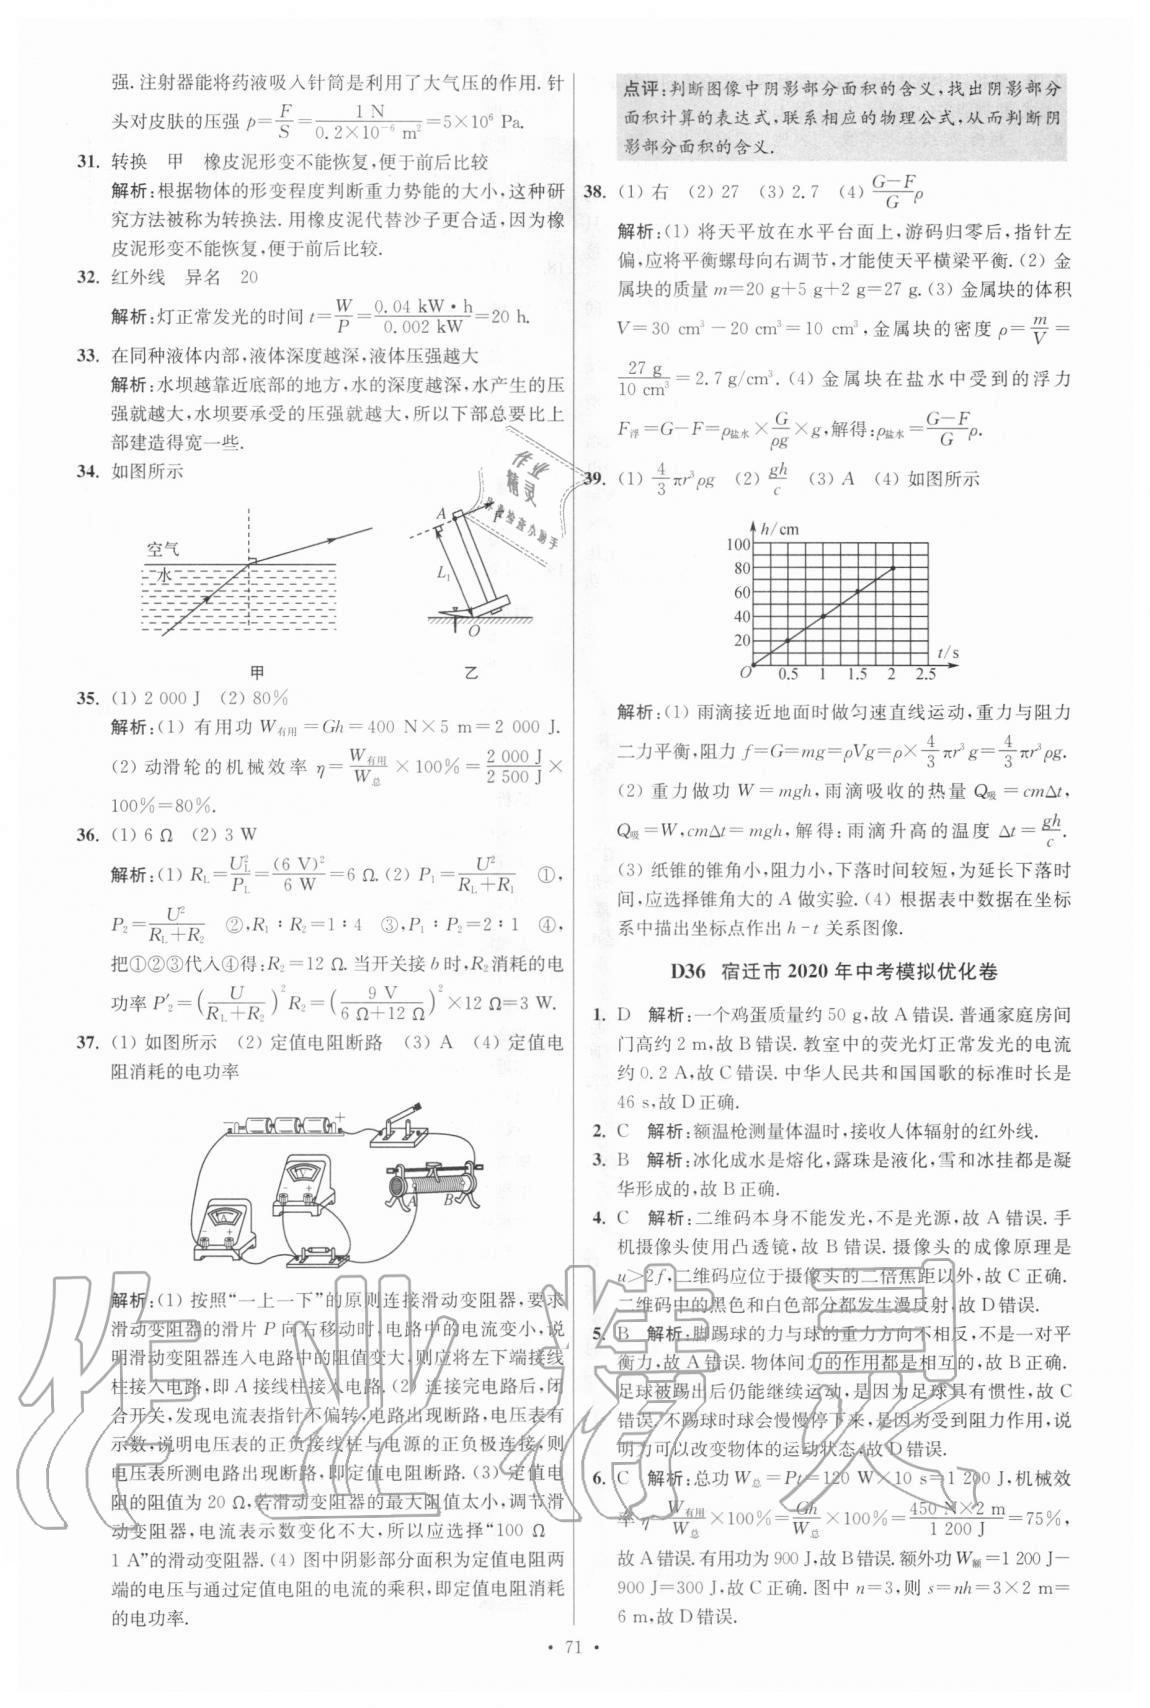 强.注射器能将药液吸入针筒是利用了大气压的作用.针
头对皮肤的压强 p=F/S=1 N/(0.2×10⁻⁶ m²)=5×10⁶ Pa.
31. 转换 甲 橡皮泥形变不能恢复,便于前后比较
解析:根据物体的形变程度判断重力势能的大小,这种研
究方法被称为转换法.用橡皮泥代替沙子更合适,因为橡
皮泥形变不能恢复,便于前后比较.
32. 红外线 异名 20
解析:灯正常发光的时间 t=W/P=0.04 kW·h/0.002 kW=20 h.
33. 在同种液体内部,液体深度越深,液体压强越大
解析:水坝越靠近底部的地方,水的深度越深,水产生的压
强就越大,水坝要承受的压强就越大,所以下部总要比上
部建造得宽一些.
34. 如图所示
空气
水
甲
A
F
L₁
O
乙
35. (1) 2 000 J (2) 80%
解析:(1) 有用功 W有用=Gh=400 N×5 m=2 000 J.
(2) 动滑轮的机械效率 η=W有用/W总×100%=2 000 J/2 500 J×
100%=80%.
36. (1) 6 Ω (2) 3 W
解析:(1) R_L=U_L²/P_L=(6 V)²/6 W=6 Ω.(2) P₁=U²/(R_L+R₁) ①,
P₂=U²/(R_L+R₂) ②,R₁∶R₂=1∶4 ③,P₁∶P₂=2∶1 ④,
把①②③代入④得:R₂=12 Ω.当开关接 b 时,R₂消耗的电
功率 P′₂=(U/(R_L+R₂))²R₂=(9 V/(6 Ω+12 Ω))²×12 Ω=3 W.
37. (1) 如图所示 (2) 定值电阻断路 (3) A (4) 定值电
阻消耗的电功率
− +
A B
解析:(1) 按照“一上一下”的原则连接滑动变阻器,要求
滑动变阻器的滑片 P 向右移动时,电路中的电流变小,说
明滑动变阻器连入电路中的阻值变大,则应将左下端接线
柱接入电路,即 A 接线柱接入电路.(2) 连接完电路后,闭
合开关,发现电流表指针不偏转,电路出现断路,电压表有
示数,说明电压表的正负接线柱与电源的正负极连接,则
电压表所测电路出现断路,即定值电阻断路.(3) 定值电
阻的阻值为 20 Ω,若滑动变阻器的最大阻值太小,调节滑
动变阻器,电流表示数变化不大,所以应选择“100 Ω
1 A”的滑动变阻器.(4) 图中阴影部分面积为定值电阻两
端的电压与通过定值电阻的电流的乘积,即定值电阻消耗
的电功率.
点评:判断图像中阴影部分面积的含义,找出阴影部分
面积计算的表达式,联系相应的物理公式,从而判断阴
影部分面积的含义.
38. (1) 右 (2) 27 (3) 2.7 (4) (G−F)/G ρ
解析:(1) 将天平放在水平台面上,游码归零后,指针左
偏,应将平衡螺母向右调节,才能使天平横梁平衡.(2) 金
属块的质量 m=20 g+5 g+2 g=27 g.(3) 金属块的体积
V=30 cm³−20 cm³=10 cm³,金属块的密度 ρ=m/V=
27 g/10 cm³=2.7 g/cm³.(4) 金属块在盐水中受到的浮力
F浮=G−F=ρ盐水×G/ρg×g,解得:ρ盐水=(G−F)/G ρ.
39. (1) 4/3 πr³ρg (2) gh/c (3) A (4) 如图所示
h/cm
100
80
60
40
20
O 0.5 1 1.5 2 2.5
t/s
解析:(1) 雨滴接近地面时做匀速直线运动,重力与阻力
二力平衡,阻力 f=G=mg=ρVg=ρ×4/3 πr³g=4/3 πr³ρg.
(2) 重力做功 W=mgh,雨滴吸收的热量 Q吸=cmΔt,
Q吸=W,cmΔt=mgh,解得:雨滴升高的温度 Δt=gh/c.
(3) 纸锥的锥角小,阻力小,下落时间较短,为延长下落时
间,应选择锥角大的 A 做实验.(4) 根据表中数据在坐标
系中描出坐标点作出 h-t 关系图像.
D36 宿迁市 2020 年中考模拟优化卷
1. D 解析:一个鸡蛋质量约 50 g,故 A 错误.普通家庭房间
门高约 2 m,故 B 错误.教室中的荧光灯正常发光的电流
约 0.2 A,故 C 错误.中华人民共和国国歌的标准时长是
46 s,故 D 正确.
2. C 解析:额温枪测量体温时,接收人体辐射的红外线.
3. B 解析:冰化成水是熔化,露珠是液化,雪和冰挂都是凝
华形成的,故 B 正确.
4. C 解析:二维码本身不能发光,不是光源,故 A 错误.手
机摄像头使用凸透镜,故 B 错误.摄像头的成像原理是
u>2f,二维码应位于摄像头的二倍焦距以外,故 C 正确.
二维码中的黑色和白色部分都发生漫反射,故 D 错误.
5. B 解析:脚踢球的力与球的重力方向不相反,不是一对平
衡力,故 A 错误.物体间力的作用都是相互的,故 B 正确.
足球被踢出后仍能继续运动,是因为足球具有惯性,故 C
错误.不踢球时球会慢慢停下来,是因为受到阻力作用,说
明力可以改变物体的运动状态,故 D 错误.
6. C 解析:总功 W总=Pt=120 W×10 s=1 200 J,机械效
率 η=W有用/W总×100%=Gh/W总×100%=450 N×2 m/1 200 J=75%,
故 A 错误.有用功为 900 J,故 B 错误.额外功 W额=1 200 J−
900 J=300 J,故 C 正确.图中 n=3,则 s=nh=3×2 m=
6 m,故 D 错误.
· 71 ·
作业精灵